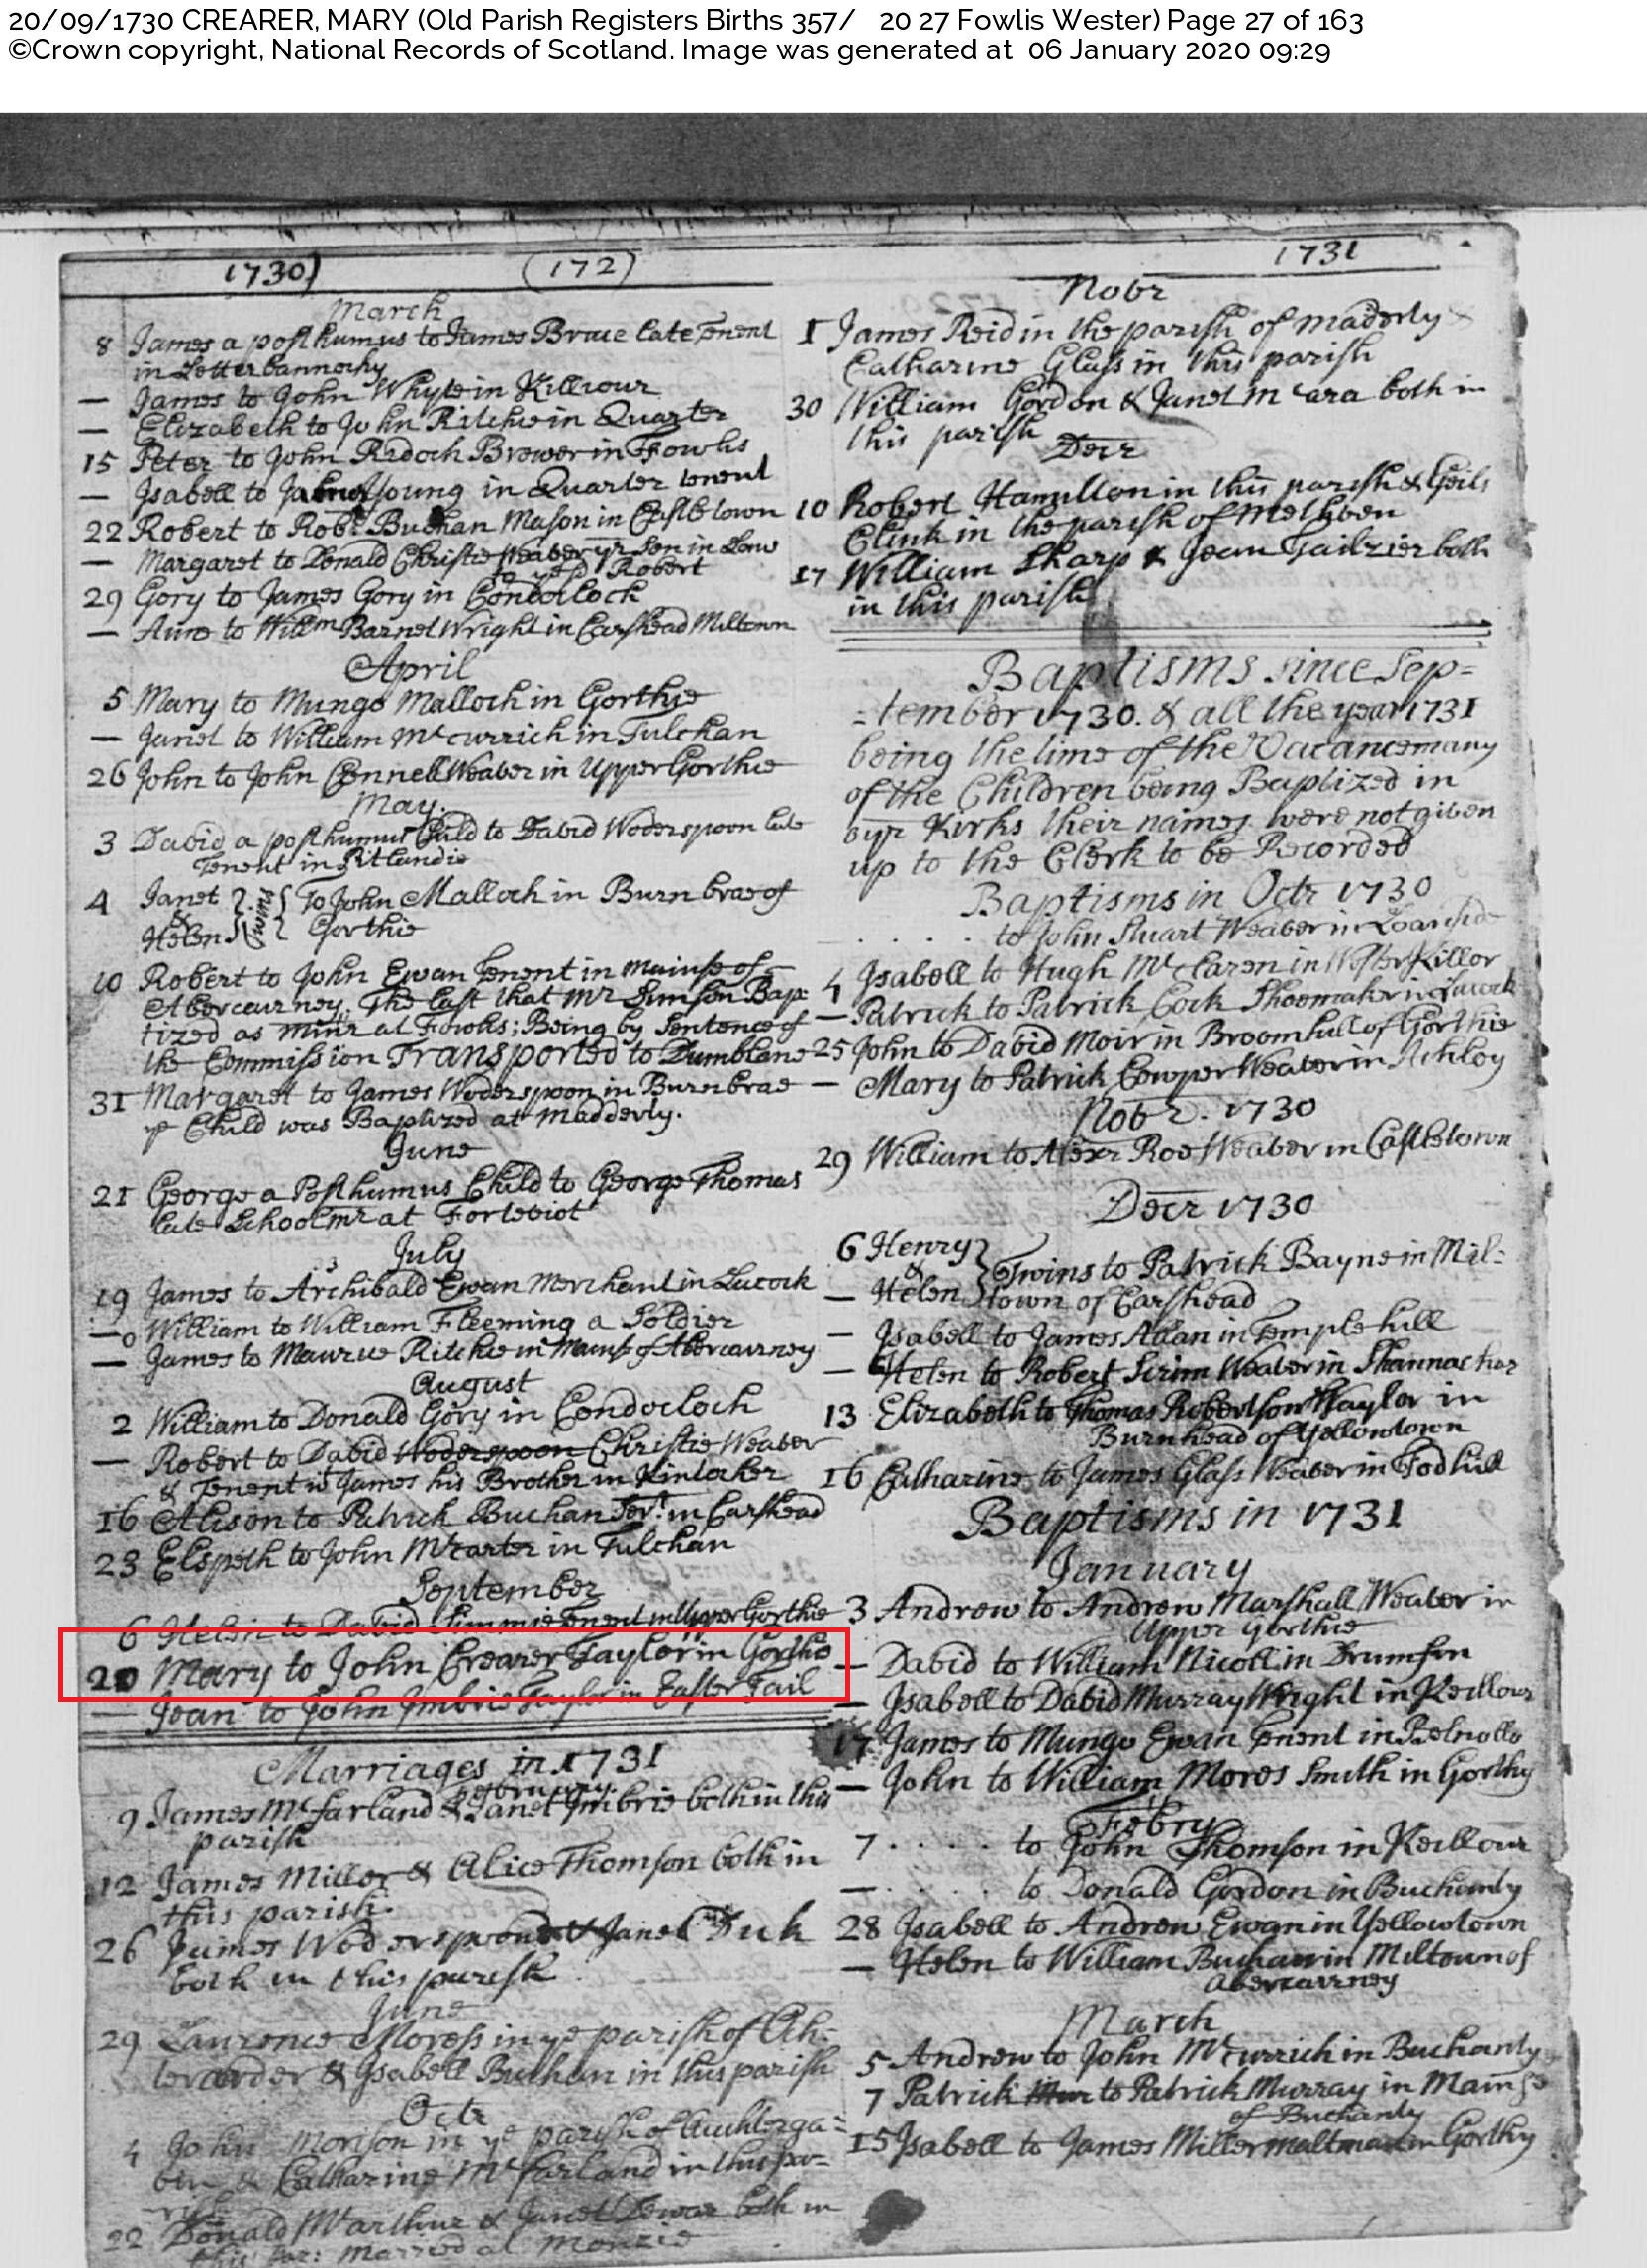 20/09/1730 CREARER, MARY (Old Parish Registers Births 357/ 20 27 Fowlis Wester) Page 27 of 163
©Crown copyright, National Records of Scotland. Image was generated at 06 January 2020 09:29
1730) (172)
March
8 James a posthumus to James Bruce late Tenent
in Letterbannochy
— James to John Whyte in Killiour
— Elizabeth to John Ritchie in Quarter
15 Peter to John Ridoch Brewer in Fowlis
— Isabell to Young in Quarter tenent
22 Robert to Robt Buchan Mason in Castletown
— Margaret to Donald Christie Weaver yr Son in
Robert
29 Gory to James Gory in Condocloch
— Anne to Willm Barnet Wright in Carshead Miltown
April
5 Mary to Mungo Malloch in Gorthie
— Janet to William Mccurrich in Tulchan
26 John to John Connell Weaver in Upper Gorthie
May.
3 David a posthumus Child to David Woderspoon late
Tenent in Pitlandie
4 Janet & Helen Twins To John Malloch in Burnbrae of
Gorthie
10 Robert to John Ewan Tenent in mainse of
Abercairney. The last that Mr Simson Bap
tized as minr at Fowlis; Being by Sentence of
the Commission Transported to Dumblane
31 Margaret to James Woderspoon in Burnbrae
ye Child was Baptized at Madderly.
June
21 George a Posthumus Child to George Thomas
late Schoolmr at Forteviot
July
19 James to Archibald Ewan Merchant in Lacock
— William to William Fleeming a Soldier
— James to Maurice Ritchie in Mainse of Abercairney
August
2 William to Donald Gory in Condocloch
— Robert to David Woderspoon Christie Weaver
& Tenent wt James his Brother in Kintocher
16 Alison to Patrick Buchan Servt in Carshead
23 Elspeth to John Mccarter in Tulchan
September
6 Helen to David Simmie Tenent in Upper Gorthie
20 Mary to John Crearer Taylor in Gorthie
— Jean to John Imbrie Taylor in Easter Fail
Marriages in 1731
February.
9 James Mcfarland & Janet Imbrie both in this
parish
12 James Miller & Alice Thomson both in
this parish.
26 James Woderspoon & Janet Duk
both in this parish
June
29 Laurence Moress in ye parish of Och-
terarder & Isabell Buchan in this parish
Octr
4 John Morison in ye parish of Auchterga-
ven & Catharine Mcfarland in this pa-
22 Donald Mcarthur & Janet Dewar both in
this par: married at Monzie
1731
Nobr
1 James Reid in the parish of Madderly
Catharine Glass in this parish
30 William Gordon & Janet Mcara both in
this parish
Decr
10 Robert Hamilton in this parish & Geils
Clink in the parish of Methven
17 William Sharp & Jean Tailzier both
in this parish
Baptisms since Sep-
-tember 1730. & all the year 1731
being the time of the Vacance many
of the Children being Baptized in
oyr Kirks their names were not given
up to the Clerk to be Recorded
Baptisms in Octr 1730
. . . . to John Stuart Weaver in
4 Isabell to Hugh Mcclaren in Wester Killor
— Patrick to Patrick Cock Shoemaker in Lacock
25 John to David Moir in Broomhill of Gorthie
— Mary to Patrick Cowper Weaver in Achloy
Nobr. 1730
29 William to Alexr Roe Weaver in Castletown
Decr 1730
6 Henry & Twins to Patrick Bayne in Mil-
— Helen town of Carshead
— Isabell to James Allan in Temple hill
— Helen to Robert Scrim Weaver in Shannachar
13 Elizabeth to Thomas Robertson Taylor in
Burnhead of Yellowtown
16 Catharine to James Glass Weaver in Fodhill
Baptisms in 1731
January
3 Andrew to Andrew Marshall Weaver in
Upper Gorthie
— David to William Nicoll in Drumfin
— Isabell to David Murray Wright in Keillour
17 James to Mungo Ewan Tenent in Belnollo
— John to William Mores Smith in Gorthy
Febry
7 . . . . to John Thomson in Keillour
— . . . . to Donald Gordon in Buchanty
28 Isabell to Andrew Ewan in Yellowtown
— Helen to William Buchan in Miltown of
Abercairney
March
5 Andrew to John Mccurrich in Buchanty
7 Patrick to Patrick Murray in Mainse
of Buchanty
15 Isabell to James Miller maltman in Gorthy